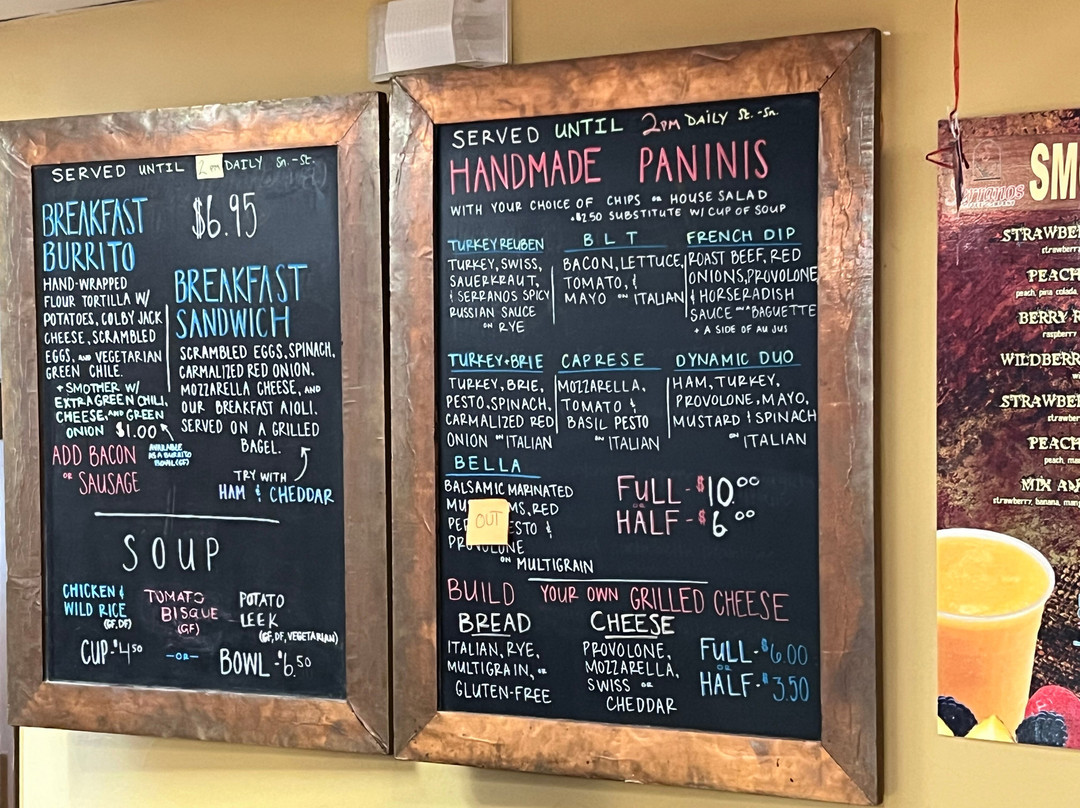 SERVED UNTIL 2pm DAILY Sn.-St.
BREAKFAST
BURRITO
$6.95
HAND-WRAPPED
FLOUR TORTILLA W/
POTATOES, COLBY JACK
CHEESE, SCRAMBLED
EGGS, AND VEGETARIAN
GREEN CHILE.
+ SMOTHER W/
EXTRA GREEN CHILI,
CHEESE, AND GREEN
ONION $1.00
AVAILABLE
AS A BURRITO
BOWL (GF)
ADD BACON
OR SAUSAGE
BREAKFAST
SANDWICH
SCRAMBLED EGGS, SPINACH,
CARMALIZED RED ONION,
MOZZARELLA CHEESE, AND
OUR BREAKFAST AIOLI.
SERVED ON A GRILLED
BAGEL.
TRY WITH
HAM & CHEDDAR
SOUP
CHICKEN &
WILD RICE
(GF, DF)
TOMATO
BISQUE
(GF)
POTATO
LEEK
(GF, DF, VEGETARIAN)
CUP-$4.50 -OR- BOWL-$6.50
SERVED UNTIL 2PM DAILY St.-Sn.
HANDMADE PANINIS
WITH YOUR CHOICE OF CHIPS OR HOUSE SALAD
+$2.50 SUBSTITUTE W/ CUP OF SOUP
TURKEY REUBEN
TURKEY, SWISS,
SAUERKRAUT,
& SERRANOS SPICY
RUSSIAN SAUCE
ON RYE
BLT
BACON, LETTUCE,
TOMATO, &
MAYO ON ITALIAN
FRENCH DIP
ROAST BEEF, RED
ONIONS, PROVOLONE
& HORSERADISH
SAUCE ON A BAGUETTE
+ A SIDE OF AU JUS
TURKEY+BRIE
TURKEY, BRIE,
PESTO, SPINACH,
CARMALIZED RED
ONION ON ITALIAN
CAPRESE
MOZZARELLA,
TOMATO &
BASIL PESTO
ON ITALIAN
DYNAMIC DUO
HAM, TURKEY,
PROVOLONE, MAYO,
MUSTARD & SPINACH
ON ITALIAN
BELLA
BALSAMIC MARINATED
MU MS, RED
PE ESTO &
PROVOLONE
ON MULTIGRAIN
OUT
FULL-$10.00
OR
HALF-$6.00
BUILD YOUR OWN GRILLED CHEESE
BREAD
ITALIAN, RYE,
MULTIGRAIN, OR
GLUTEN-FREE
CHEESE
PROVOLONE,
MOZZARELLA,
SWISS OR
CHEDDAR
FULL-$6.00
OR
HALF-$3.50
SM
STRAWBE
PEACH
peach, pina colada
BERRY R
raspberry
WILDBERR
STRAWBE
PEACH
MIX A
strawberry, banana, man